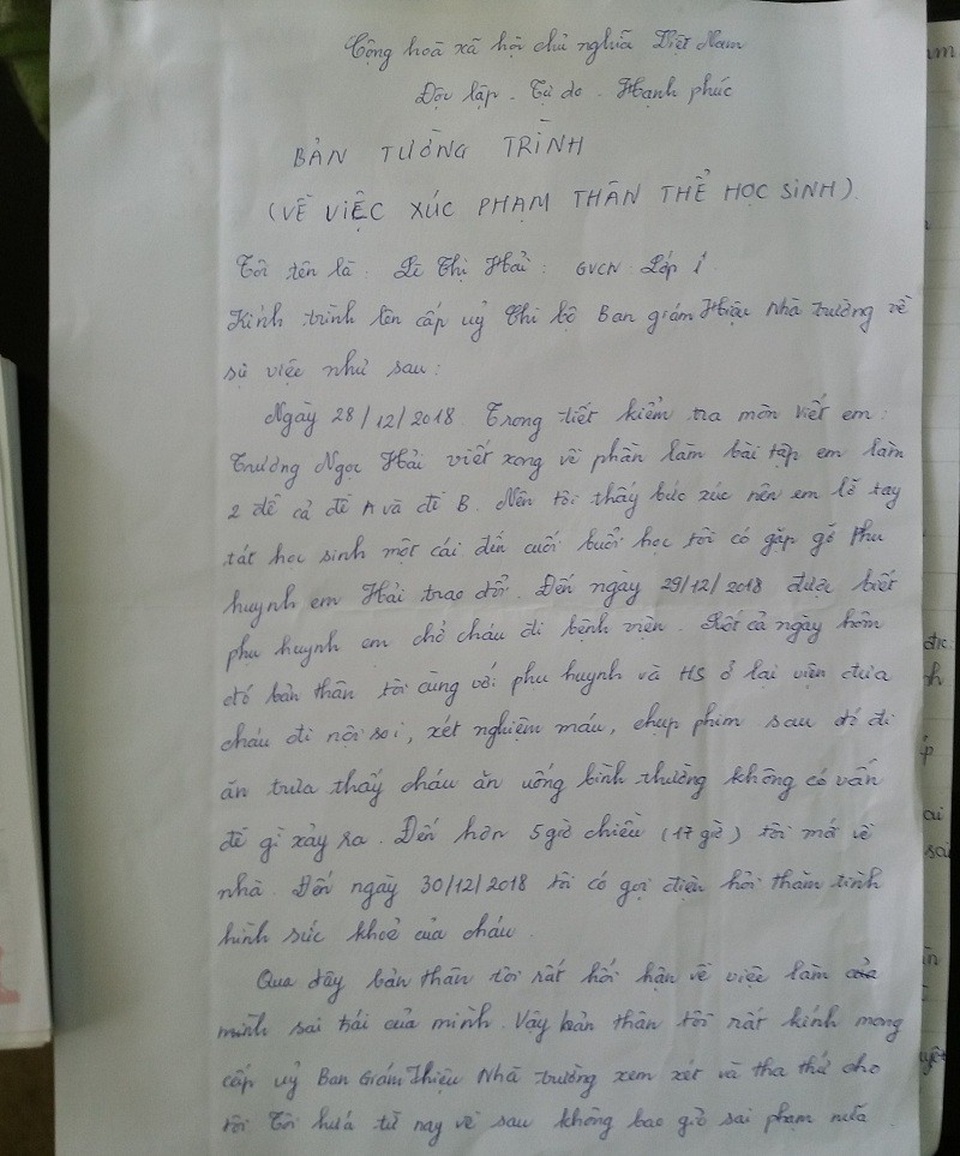 Cộng hoà xã hội chủ nghĩa Việt Nam
Độc lập - Tự do - Hạnh phúc
BẢN TƯỜNG TRÌNH
(VỀ VIỆC XÚC PHẠM THÂN THỂ HỌC SINH).
Tôi tên là: Lê Thị Hải: GVCN Lớp 1
Kính trình lên cấp uỷ Chi bộ Ban giám Hiệu Nhà trường về
sự việc như sau:
Ngày 28/12/2018. Trong tiết kiểm tra môn viết em:
Trương Ngọc Hải viết xong về phần làm bài tập em làm
2 đề cả đề A và đề B. Nên tôi thấy bức xúc nên em lỡ tay
tát học sinh một cái đến cuối buổi học tôi có gặp gỡ Phu
huynh em Hải trao đổi. Đến ngày 29/12/2018 được biết
phu huynh em chở cháu đi bệnh viện. Suốt cả ngày hôm
đó bản thân tôi cùng với phu huynh và HS ở lại viện đưa
cháu đi nội soi, xét nghiệm máu, chụp phim sau đó đi
ăn trưa thấy cháu ăn uống bình thường không có vấn
đề gì xảy ra. Đến hơn 5 giờ chiều (17 giờ) tôi mới về
nhà. Đến ngày 30/12/2018 tôi có gọi điện hỏi thăm tình
hình sức khoẻ của cháu.
Qua đây bản thân tôi rất hối hận về việc làm của
mình sai trái của mình. Vậy bản thân tôi rất kính mong
cấp uỷ Ban Giám Hiệu Nhà trường xem xét và tha thứ cho
tôi Tôi hứa từ nay về sau không bao giờ sai phạm nữa